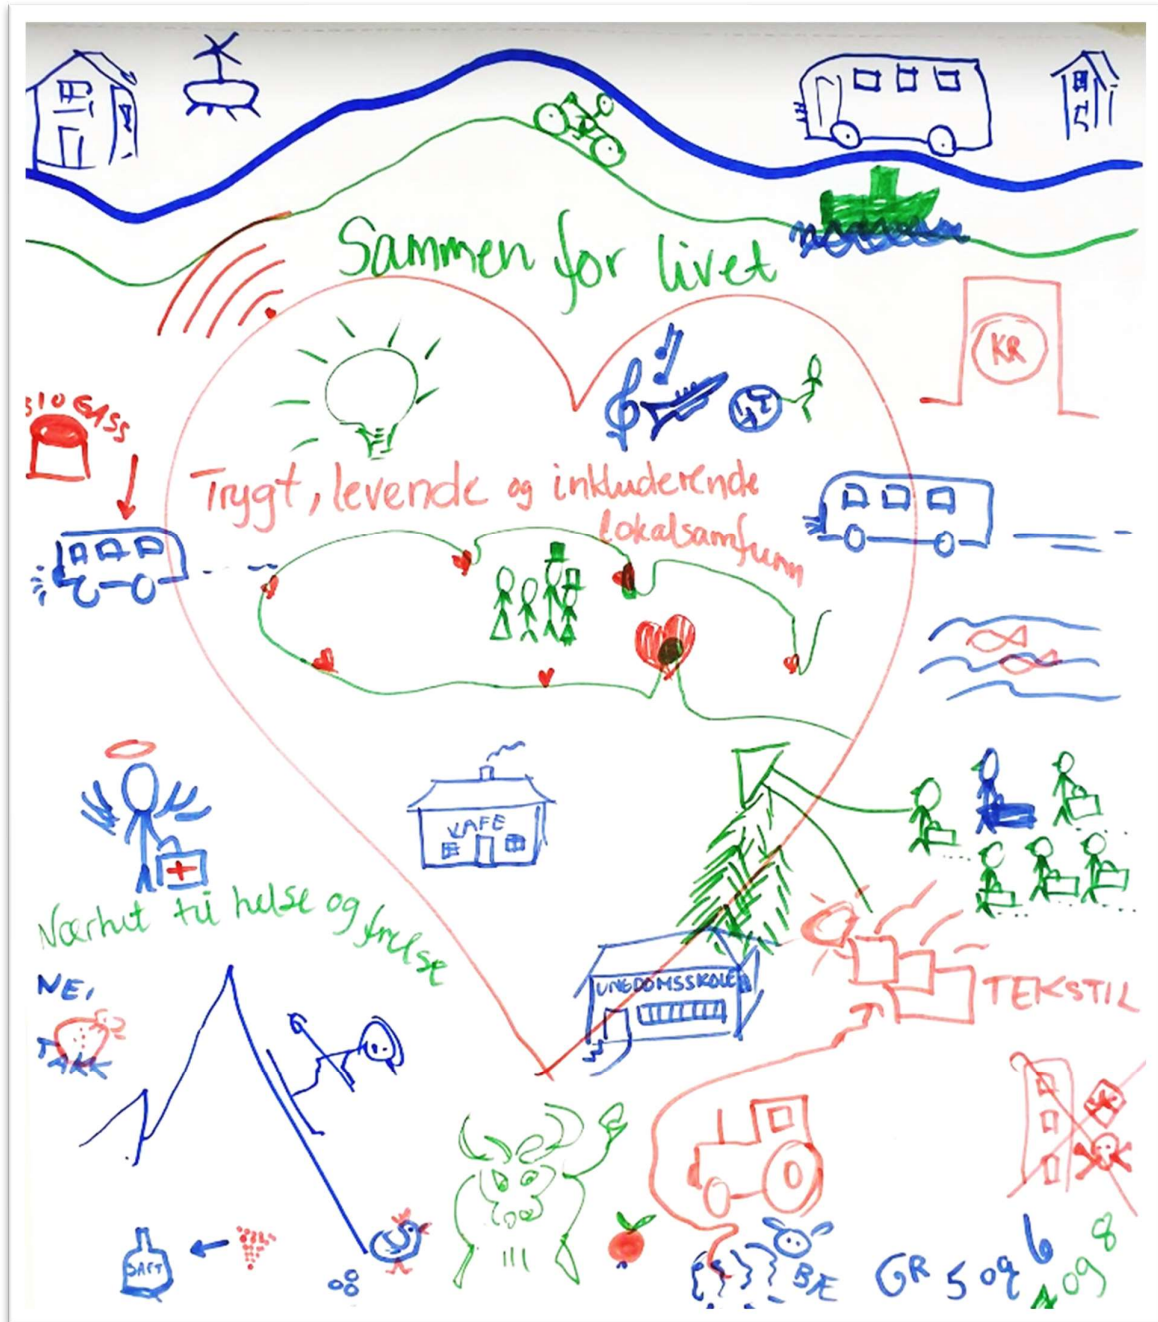 Sammen for livet
KR
BIOGASS
Trygt, levende og inkluderende
lokalsamfunn
KAFE
Nærhet til helse og frelse
UNGDOMSSKOLE
TEKSTIL
NEI
TAKK
SAFT
BÆ
GR 5 og 6
og 8